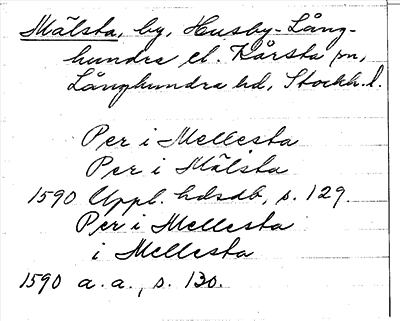 Mälsta, by, Husby-Lång-
hundra el. Kårsta sn,
Långhundra hd, Stockh. l.
Per i Mellesta
Per i Mälsta
1590 Uppl. hdsdb, s. 129
Per i Mellesta
i Mellesta
1590 a. a., s. 130.